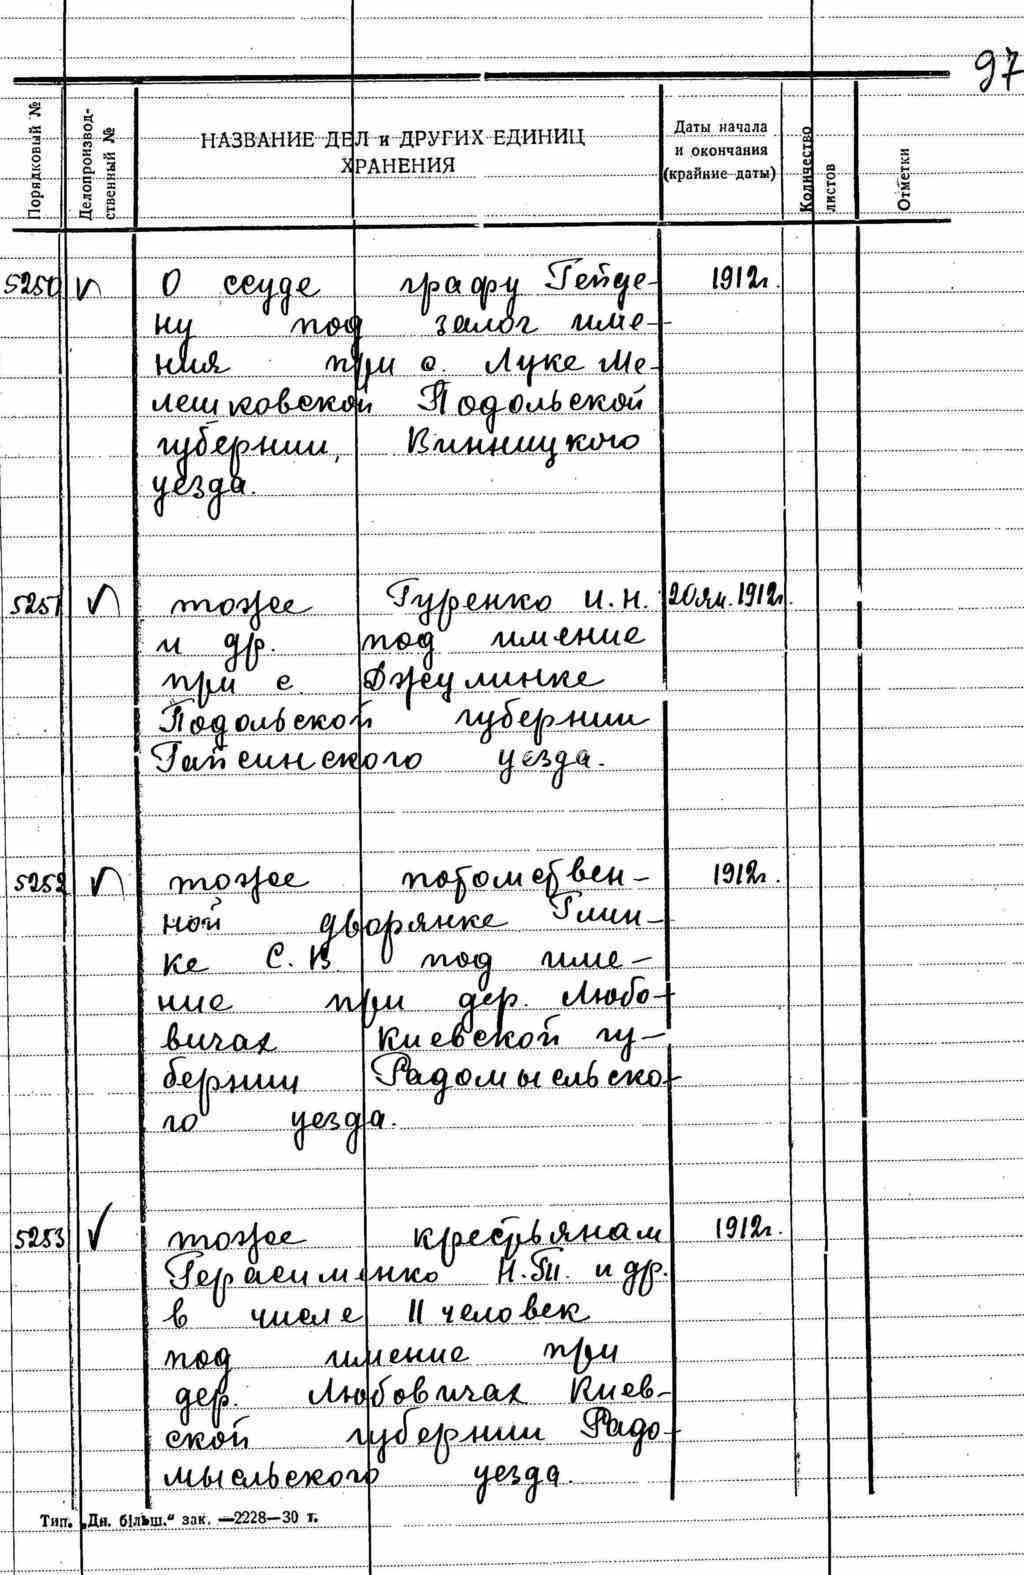 97
Порядковый №
Делопроизвод-
ственный №
НАЗВАНИЕ ДЕЛ и ДРУГИХ ЕДИНИЦ
ХРАНЕНИЯ
Даты начала
и окончания
(крайние даты)
Количество
листов
Отметки
5250 О ссуде графу Гейде- 1912г.
ну под залог име-
ния при с. Луке Ме-
лешковской Подольской
губернии, Винницкого
уезда.
5251 тоже Гуренко И.Н. 20 ян. 1912г.
и др. под имение
при с. Джулинке
Подольской губернии
Гайсинского уезда.
5252 тоже потомствен- 1912г.
ной дворянке Глин-
ке С.В. под име-
ние при дер. Любо-
вичах Киевской гу-
бернии Радомысльско-
го уезда.
5253 тоже крестьянам 1912г.
Герасименко Н.П. и др.
в числе 11 человек
под имение при
дер. Любовичах Киев-
ской губернии Радо-
мысльского уезда.
Тип. „Дн. більш.“ зак. —2228—30 г.